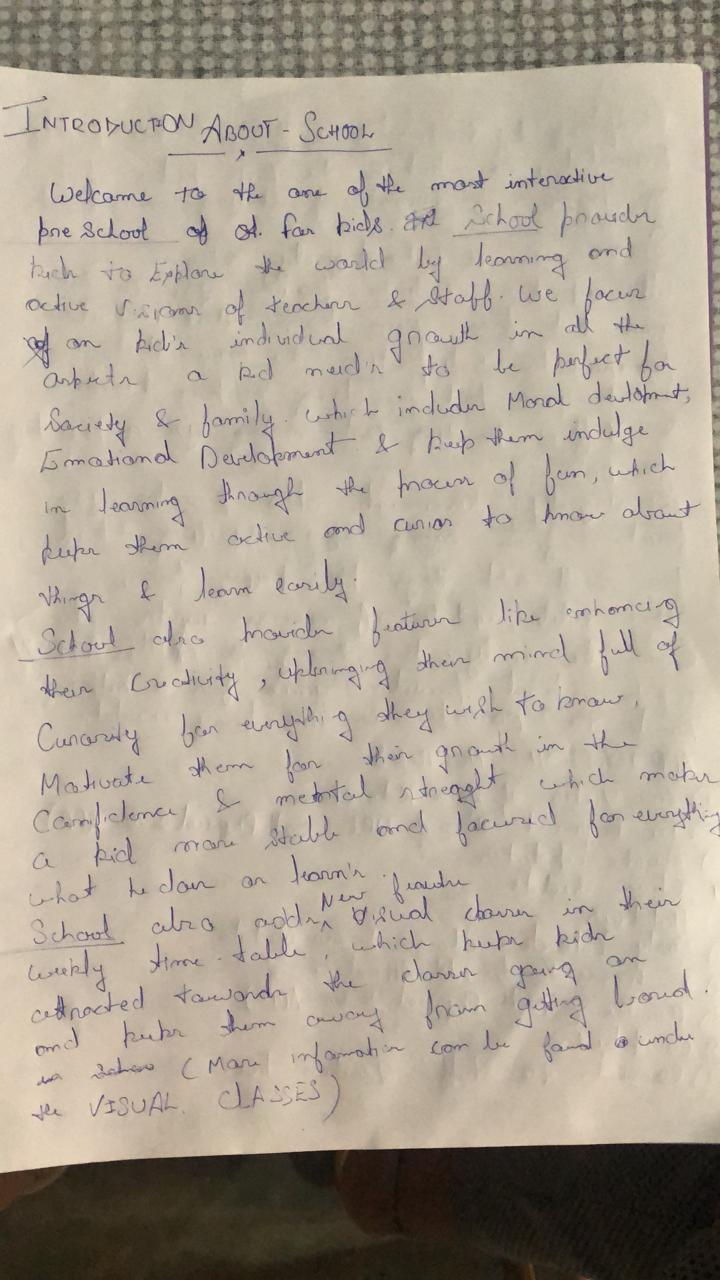 INTRODUCTION ABOUT - SCHOOL
Welcome to the one of the most interactive
pre School of for kids. School provider
to Explore the world by learning and
active of teachers & staff. We focus
on kid's individual growth in all the
aspects a kid need's to be perfect for
Society & family. which includes Moral
Emotional Development & keep them indulge
in learning through the process of fun, which
keeps them active and to know about
things & learn easily.
School also provides features like enhancing
their Creativity, upbringing their mind full of
for everything they wish to know,
Motivate them for their growth in the
Confidence & mental which makes
a kid more stable and focused for everything
what he does or learn's.
School also adds New feauture Visual classes in their
weekly time-table, which keeps kids
attracted towards the classes going on
and keeps them away from getting
(More information can be found under
the VISUAL CLASSES)